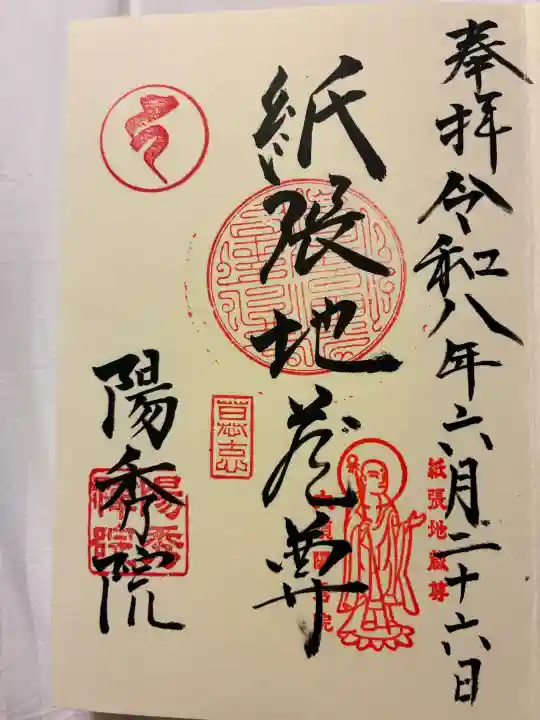 奉拝 令和八年六月二十六日
紙張地蔵尊
紙張地蔵尊
陽秀院